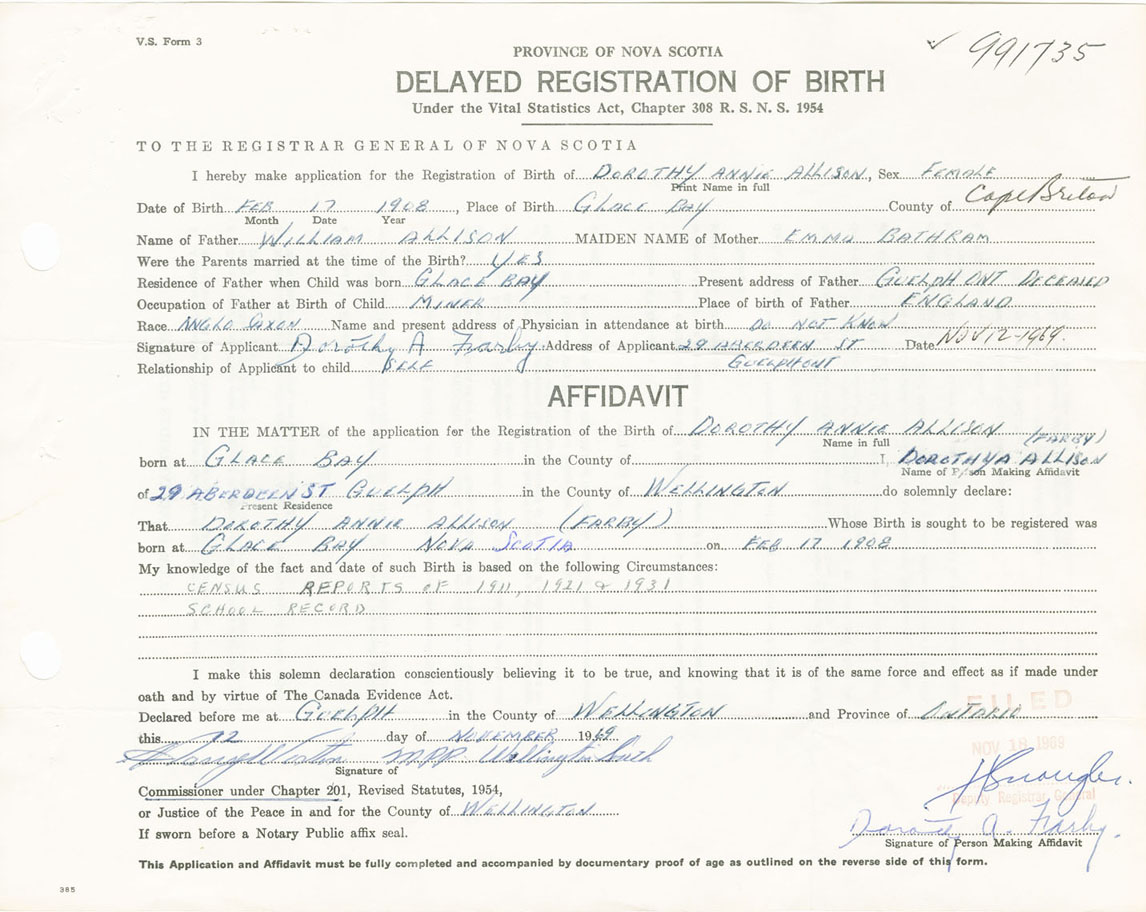 V.S. Form 3
✓ 991735
PROVINCE OF NOVA SCOTIA
DELAYED REGISTRATION OF BIRTH
Under the Vital Statistics Act, Chapter 308 R. S. N. S. 1954
TO THE REGISTRAR GENERAL OF NOVA SCOTIA
I hereby make application for the Registration of Birth of DOROTHY ANNIE ALLISON, Sex FEMALE
Print Name in full
Date of Birth FEB 17 1908, Place of Birth GLACE BAY County of Cape Breton
Month Date Year
Name of Father WILLIAM ALLISON MAIDEN NAME of Mother EMMA BATHRAM
Were the Parents married at the time of the Birth? YES
Residence of Father when Child was born GLACE BAY Present address of Father GUELPH ONT DECEASED
Occupation of Father at Birth of Child MINER Place of birth of Father ENGLAND
Race ANGLO SAXON Name and present address of Physician in attendance at birth DO NOT KNOW
Signature of Applicant Dorothy A Farby Address of Applicant 29 ABERDEEN ST Date NOV 12-1969.
Relationship of Applicant to child SELF GUELPH ONT
AFFIDAVIT
IN THE MATTER of the application for the Registration of the Birth of DOROTHY ANNIE ALLISON (FARBY)
Name in full
born at GLACE BAY in the County of I, DOROTHY A ALLISON
Name of Person Making Affidavit
of 29 ABERDEEN ST GUELPH in the County of WELLINGTON do solemnly declare:
Present Residence
That DOROTHY ANNIE ALLISON (FARBY) Whose Birth is sought to be registered was
born at GLACE BAY NOVA SCOTIA on FEB 17 1908
My knowledge of the fact and date of such Birth is based on the following Circumstances:
CENSUS REPORTS OF 1911, 1921 & 1931
SCHOOL RECORD
I make this solemn declaration conscientiously believing it to be true, and knowing that it is of the same force and effect as if made under
oath and by virtue of The Canada Evidence Act.
FILED
Declared before me at GUELPH in the County of WELLINGTON and Province of ONTARIO
this 12 day of NOVEMBER 1969
NOV 18 1969
Harry Worton MPP Wellington South
Signature of
Commissioner under Chapter 201, Revised Statutes, 1954,
Deputy Registrar General
or Justice of the Peace in and for the County of WELLINGTON
If sworn before a Notary Public affix seal.
Dorothy A. Farby.
Signature of Person Making Affidavit
This Application and Affidavit must be fully completed and accompanied by documentary proof of age as outlined on the reverse side of this form.
385